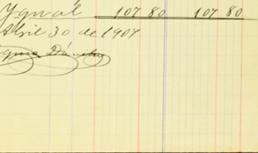 Ygual 107 80 107 80
Abril 30 de 1907